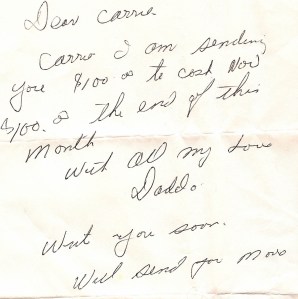 Dear Carrie
Carrie I am sending
you $100.00 to cash Now
$100.00 the end of this
Month
With all my Love
Daddo
you soon.
Will send you More